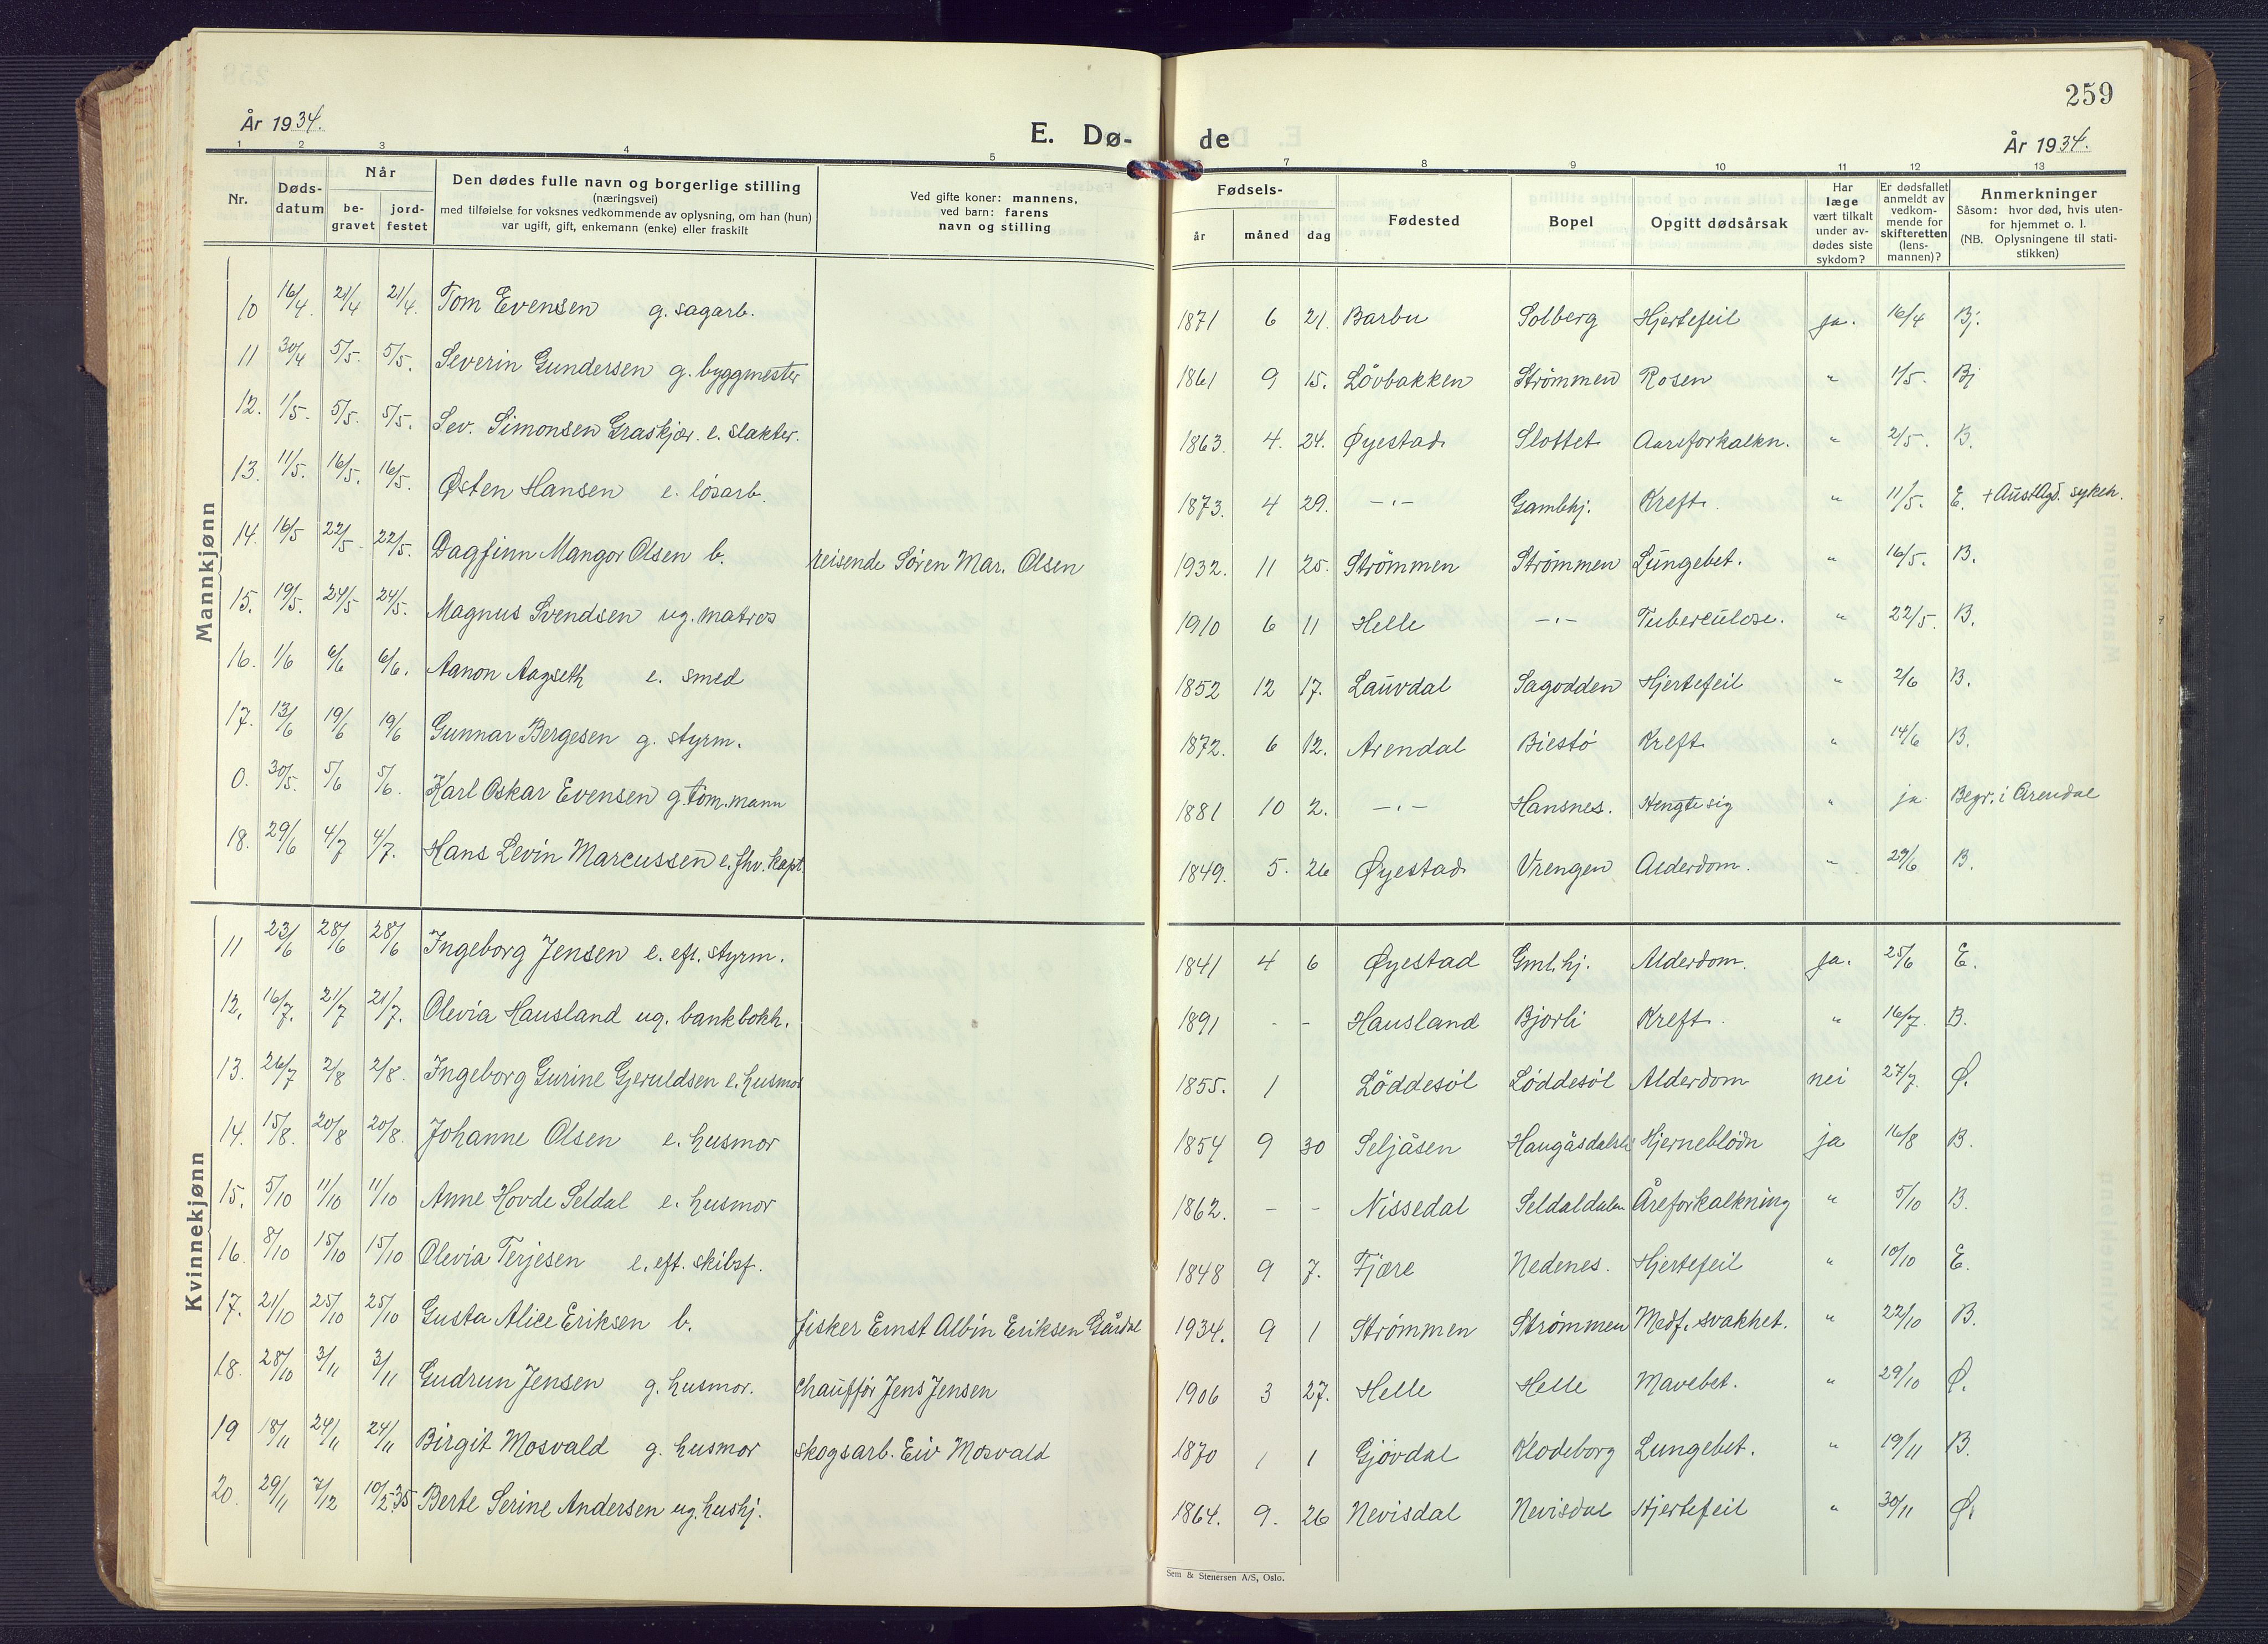 259
År 1934.
E. Dø-
de
År 1934.
1 2 3 4 5 7 8 9 10 11 12 13
Nr. Døds-datum Når be-gravet jord-festet Den dødes fulle navn og borgerlige stilling (næringsvei) med tilføielse for voksnes vedkommende av oplysning, om han (hun) var ugift, gift, enkemann (enke) eller fraskilt Ved gifte koner: mannens, ved barn: farens navn og stilling Fødsels- år måned dag Fødested Bopel Opgitt dødsårsak Har læge vært tilkalt under av-dødes siste sykdom? Er dødsfallet anmeldt av vedkom-mende for skifteretten (lens-mannen)? Anmerkninger Såsom: hvor død, hvis uten-for hjemmet o. l. (NB. Oplysningene til stati-stikken)
Mannkjønn
10 16/4. 21/4 21/4. Tom Evensen g. sagarb. 1871 6 21. Barbu Solberg Hjertefeil ja. 16/4 Bj.
11 30/4 5/5. 5/5. Severin Gundersen g. byggmester 1861 9 15. Løvbakken Strømmen Rosen " 1/5. Bj
12. 1/5. 5/5. 5/5. Sev. Simonsen Graskjær. e. slakter. 1863. 4. 24. Øyestad Slottet Aareforkalkn. " 2/5. B.
13. 11/5. 16/5. 16/5. Østen Hansen e. løsarb. 1873. 4 29. -"- Gamlehj. Kreft. " 11/5. E. + Aust Agd. sykeh.
14. 16/5 22/5. 22/5. Dagfinn Mangor Olsen b. reisende Søren Mar. Olsen 1932. 11 25. Strømmen Strømmen Lungebet. " 16/5. B.
15. 19/5. 24/5 24/5. Magnus Svendsen ug. matros 1910 6 11 Helle -"- Tuberculose. " 22/5. B.
16. 1/6 6/6 6/6. Aanon Aagseth e. smed 1852 12 17. Lauvdal Sagodden Hjertefeil " 2/6 B.
17. 13/6 19/6 19/6 Gunnar Bergesen g. styrm. 1872. 6 12. Arendal Biestø Kreft " 14/6 B.
0. 30/5. 5/6 5/6. Karl Oskar Evensen g. tøm. mann 1881 10 2. -"- Hansnes. Hengte sig " ja Begr. i Arendal
18. 29/6 4/7 4/7. Hans Levin Marcussen e. fhv. kapt. 1849. 5. 26 Øyestad Vrengen Alderdom. " 29/6 B.
Kvinnekjønn
11 23/6 28/6 28/6 Ingeborg Jensen e. eft. styrm. 1841 4 6 Øyestad Gml. hj. Alderdom. ja. 25/6 E.
12. 16/7. 21/7 21/7. Olevia Hausland ug. bankbokh. 1891 - - Hausland Bjorli Kreft. " 16/7. B.
13. 26/7 2/8 2/8. Ingeborg Gurine Gjeruldsen e. husmor 1855. 1 Løddesøl Løddesøl Alderdom nei 27/7. Ø.
14. 15/8. 20/8 20/8. Johanne Olsen e. husmor 1854 9 30 Seljåsen Hjerneblødn ja 16/8 B.
15. 5/10 11/10 11/10 Anne Hovde Seldal e. husmor 1862. - - Nissedal Seldaldalen Åreforkalkning " 5/10 B.
16. 8/10 15/10 15/10 Olevia Terjesen e. eft. skibsf. 1848 9 7. Fjære Nedenes. Hjertefeil " 10/10 E.
17. 21/10 25/10 25/10 Gusta Alice Eriksen b. fisker Ernst Albin Eriksen Gårdal 1934. 9 1 Strømmen Strømmen Medf. svakhet. " 22/10 B.
18. 28/10 3/11 3/11 Gudrun Jensen g. husmor. chauffør Jens Jensen 1906 3 27. Helle Helle Mavebet. " 29/10 Ø.
19 18/11 24/11 24/11 Birgit Mosvald g. husmor skogsarb. Eiv Mosvald 1870 1 1 Gjøvdal Klodeborg Lungebet. " 19/11 B.
20. 29/11 7/12 10/2-35 Berte Serine Andersen ug. hushj. 1864. 9. 26 Nevisdal Nevisdal Hjertefeil " 30/11 Ø.
Sem & Stenersen A/S, Oslo.